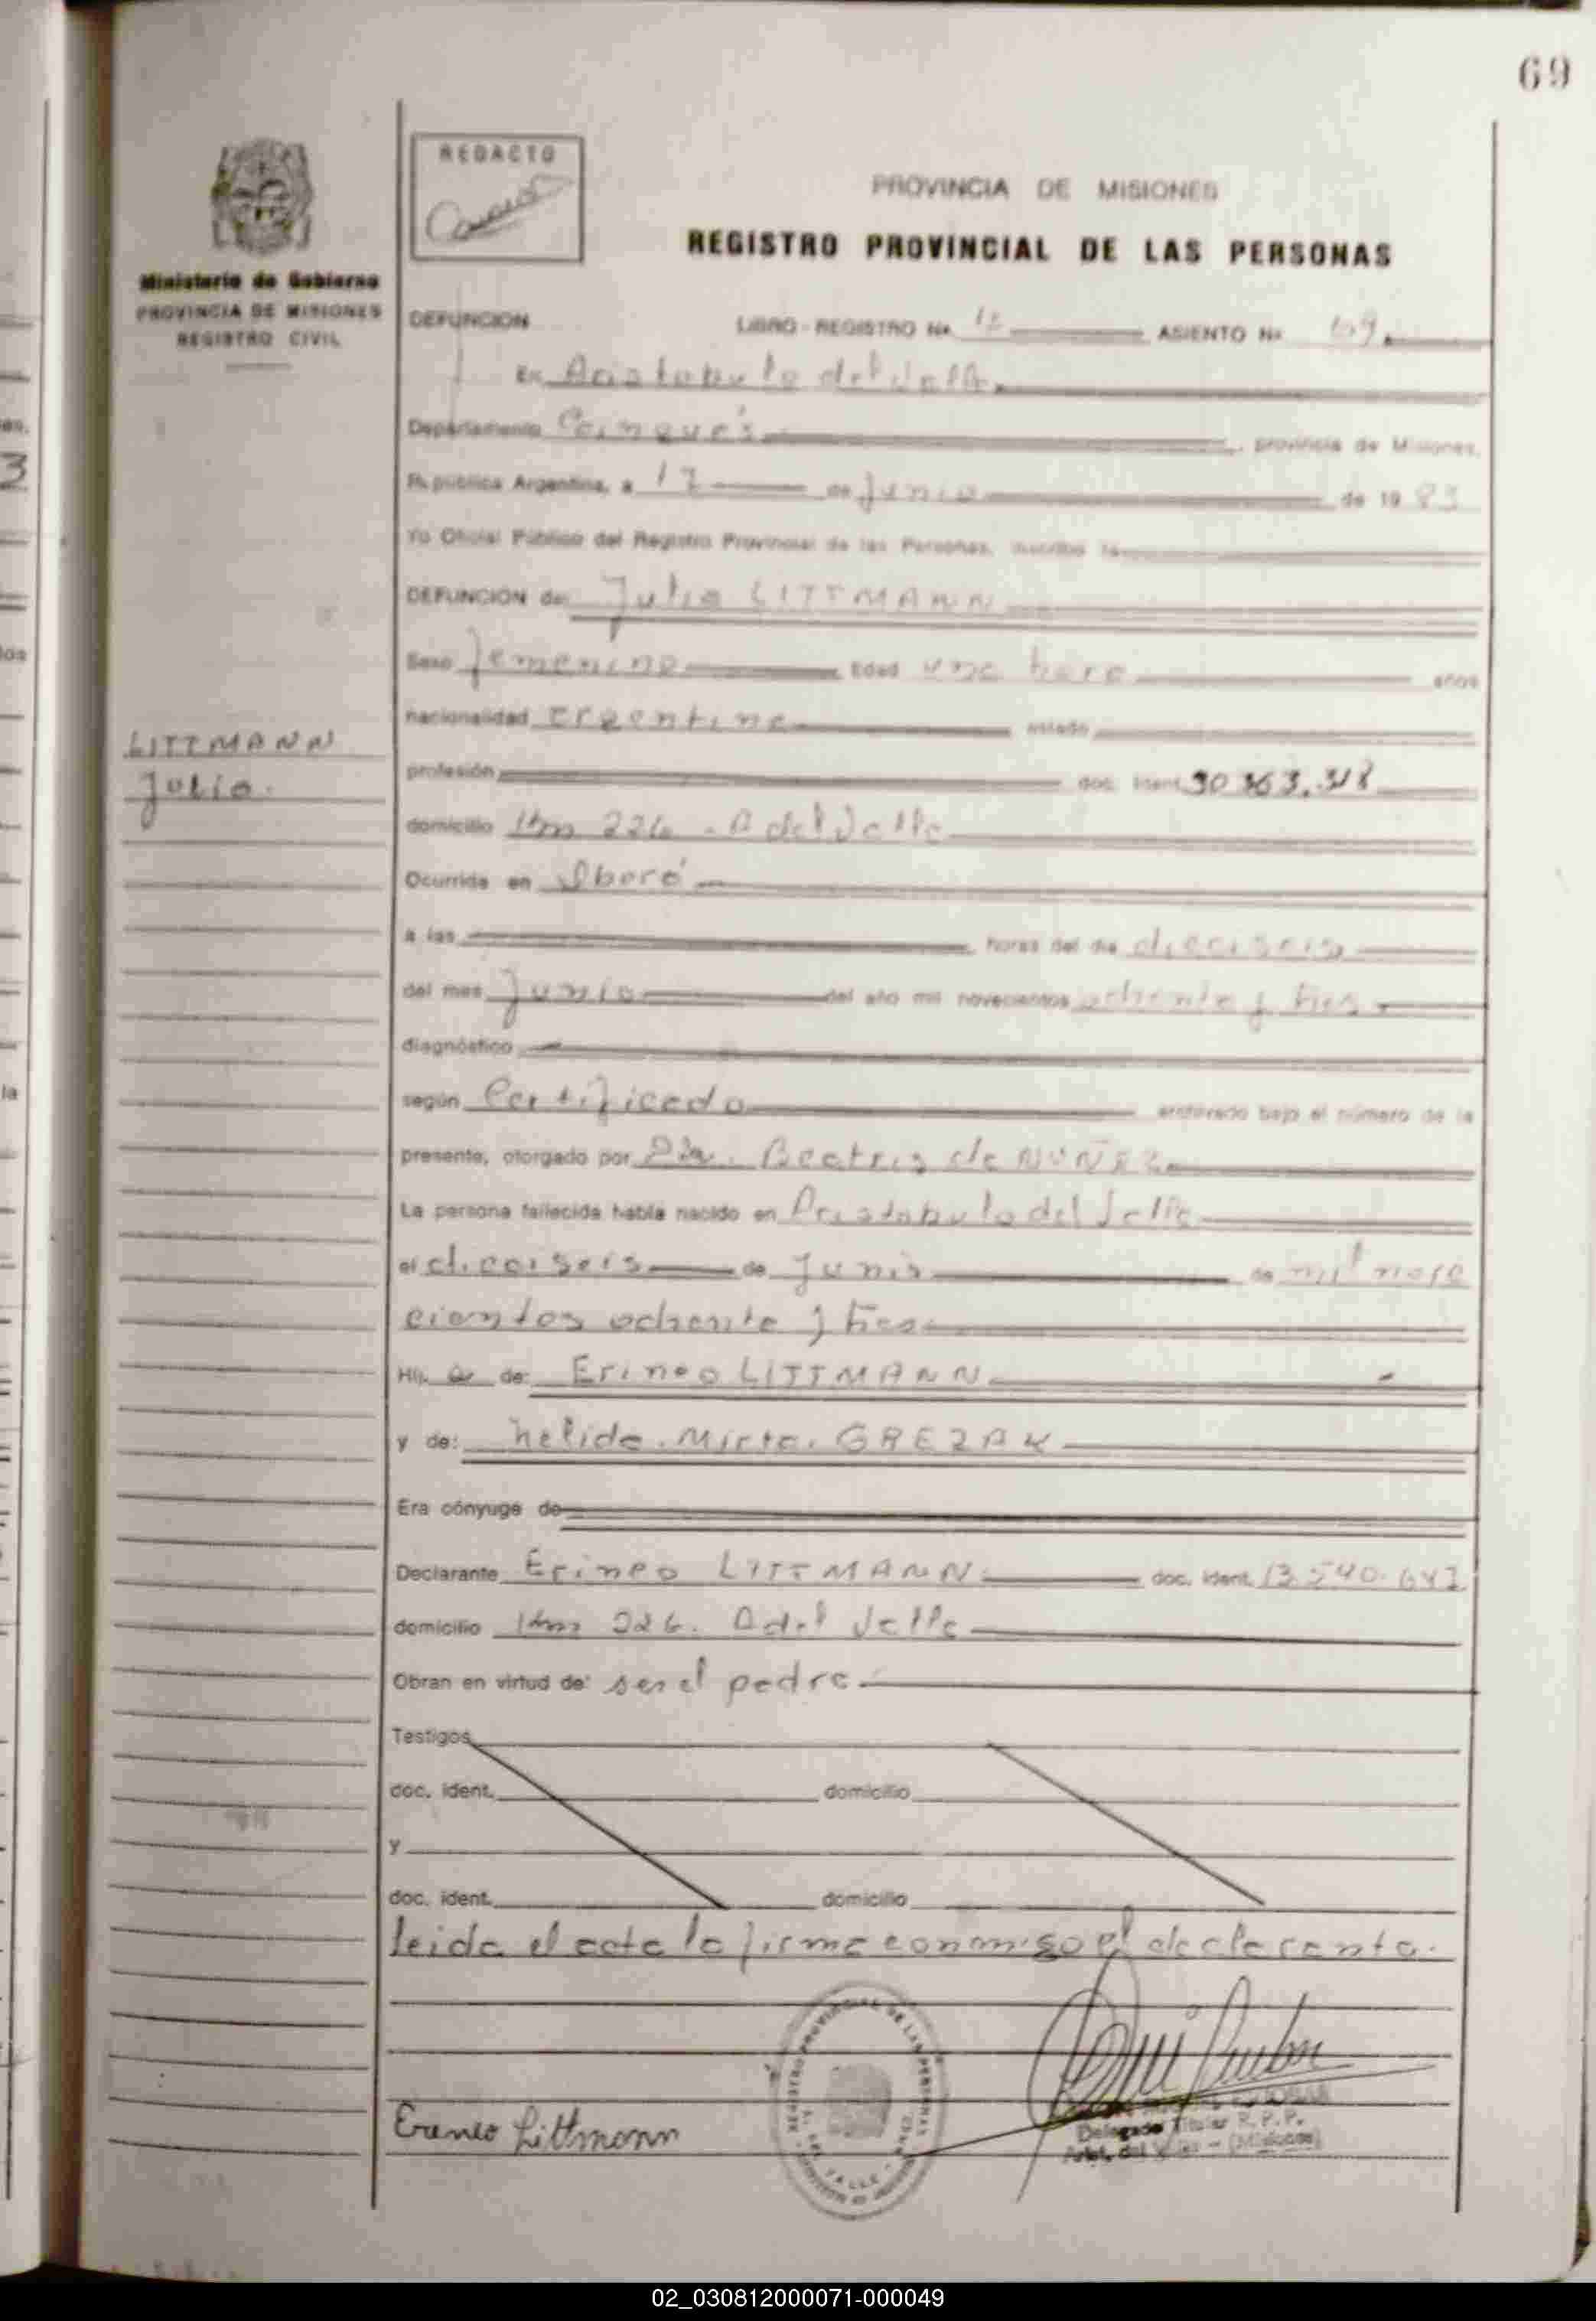 69
REDACTO
PROVINCIA DE MISIONES
REGISTRO PROVINCIAL DE LAS PERSONAS
Ministerio de Gobierno
PROVINCIA DE MISIONES
REGISTRO CIVIL
DEFUNCION LIBRO - REGISTRO Nº 12 ASIENTO Nº
En Aristobulo del Valle
Departamento Cainguás provincia de Misiones,
República Argentina, a 17 de Junio de 19 83
Yo Oficial Público del Registro Provincial de las Personas, inscribo la
DEFUNCION de Julia LITTMANN
Sexo femenino Edad una hora años
nacionalidad argentina estado
LITTMANN
Julia.
profesión doc. ident. 30 363.318
domicilio Km 226 - A del Valle
Ocurrida en Oberá
a las horas del día dieciseis
del mes Junio del año mil novecientos ochenta y tres
diagnóstico
según Certificado archivado bajo el número de la
presente, otorgado por Dra. Beatris de NUÑEZ
La persona fallecida había nacido en Aristobulo del Valle
el dieciseis de Junio de mil nove
cientos ochenta y tres
Hij a de: Erineo LITTMANN
y de: Nelida Mirta GREZAK
Era cónyuge de
Declarante Erineo LITTMANN doc. ident. 13.540.647
domicilio Km 226. A del Valle
Obran en virtud de: ser el padre
Testigos
doc. ident. domicilio
y
doc. ident. domicilio
leida el acta la firma conmigo el declarante.
REGISTRO PROVINCIAL DE LAS PERSONAS
DEL VALLE
Eraneo Littmann
Delegado Titular R. P. P.
Arist. del Valle - (Misiones)
02_030812000071-000049